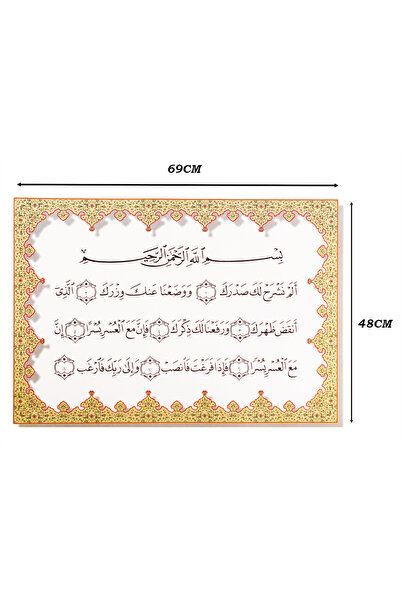 69CM
48CM
بسم الله الرحمن الرحيم
ألم نشرح لك صدرك ووضعنا عنك وزرك الذي
أنقض ظهرك ورفعنا لك ذكرك فإن مع العسر يسرا إن
مع العسر يسرا فإذا فرغت فانصب وإلى ربك فارغب